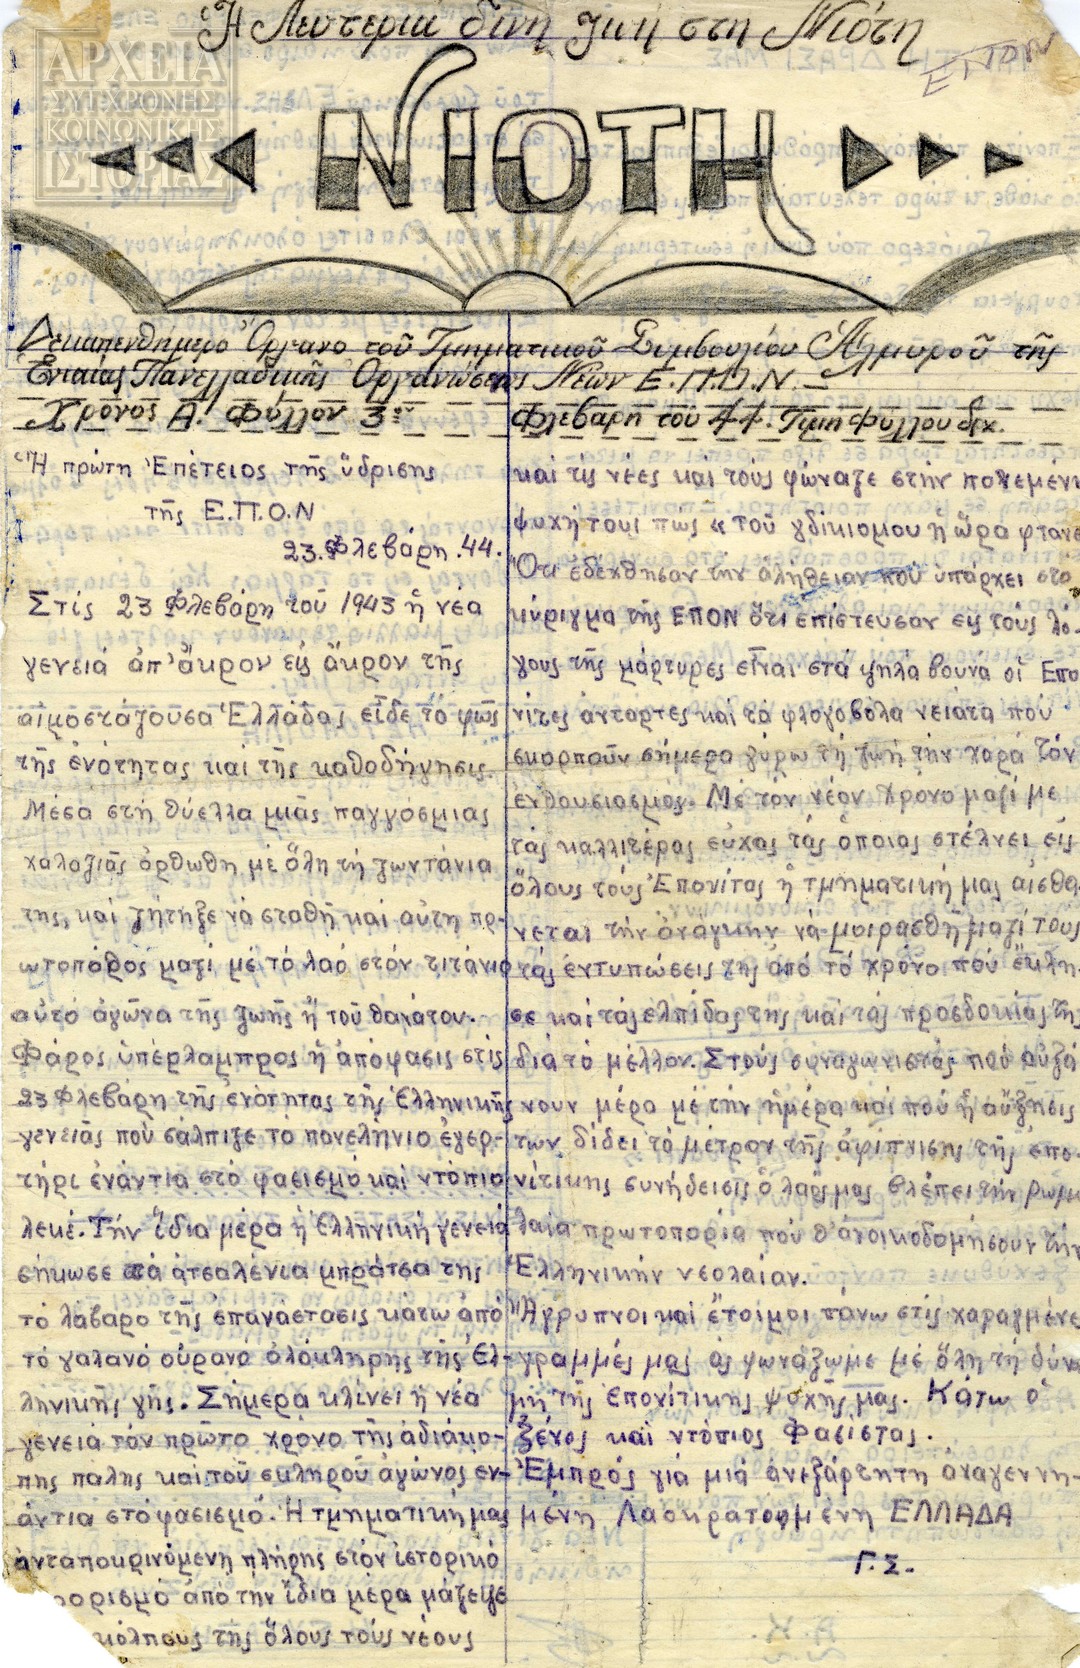 Ἡ Λευτεριά δίνη ζωή στη Νιότη
ΕΠΟΝ
ΑΡΧΕΙΑ
ΣΥΓΧΡΟΝΗΣ
ΚΟΙΝΩΝΙΚΗΣ
ΙΣΤΟΡΙΑΣ
ΝΙΟΤΗ
Δεκαπενθήμερο Ὄργανο τοῦ Τμηματικοῦ Συμβουλίου Ἁλμυροῦ τῆς
Ἑνιαίας Πανελλαδικῆς Ὀργανώσεως Νέων Ε.Π.Ο.Ν.
Χρόνος Α. Φύλλον 3ον
Φλεβάρη τοῦ 44. Τιμή Φύλλου δρχ.
Ἡ πρώτη Ἐπέτειος τῆς ὕδρισης
τῆς Ε.Π.Ο.Ν
23. Φλεβάρη .44.
Στίς 23 Φλεβάρη τοῦ 1943 ἡ νέα
γενειά ἀπ' ἄκρον εἰς ἄκρον τῆς
αἱμοσταζουσα Ἑλλάδας εἶδε τό φῶς
τῆς ἑνότητας καί τῆς καθοδήγησις.
Μέσα στή θύελλα μιᾶς παγγόσμιας
χαλαζιᾶς ὀρθώθη μέ ὅλη τή ζωντάνια
της, καί ζήτηξε νά σταθῆ καί αὐτη πρ-
ωτοπόρος μαζί μέ τό λαό στόν τιτάνιο
αὐτό ἀγῶνα τῆς ζωῆς ἤ τοῦ θανάτου.
Φάρος ὑπέρλαμπρος ἡ ἀπόφασις στίς
23 Φλεβάρη τῆς ἑνότητας τῆς Ἑλληνικῆς
γενειᾶς πού σάλπιζε τό πανελήνιο ἐγερ-
τήρι ἐνάντια στό φασισμό καί ντόπιο
λεκέ. Τήν ἴδια μέρα ἡ Ἑλληνική γενειά
σήκωσε τά ἀτσαλένια μπράτσα της
τό λάβαρο τῆς ἐπανάστασις κάτω ἀπό
τό γαλανό οὐρανό ὁλόκληρης τῆς Ἑλ-
ληνικῆς γῆς. Σήμερα κλίνει ἡ νέα
γενειά τόν πρῶτο χρόνο τῆς ἀδιάκο-
πης παλης καί τοῦ σκληροῦ ἀγῶνος εν-
άντια στό φασισμό. Ἡ τμηματική μας
ἀνταποκρινόμενη πλήρης στόν ἱστορικό
ορισμό ἀπό τήν ἴδια μέρα μάζειψε
κόλπους τῆς ὅλους τούς νέους
καί τίς νέες καί τούς φώναξε στήν πονεμένη
ψυχή τους πώς « τοῦ γδικιομου ἡ ὥρα φτανε
Ὅτι ἐδέχθησαν τήν ἀλήθειαν πού ὑπάρχει στο
κύριγμα τῆς ΕΠΟΝ ὅτι ἐπίστευσαν εἰς τούς λό-
γους τῆς μάρτυρες εἶναι στά ψηλά βουνά οἱ Επο
νίτες ἀντάρτες καί τά φλογοβόλα νειάτα πού
σκορποῦν σήμερα γύρω τή ζωή τήν χαρά τόν
ἐνθουσιασμός. Μέ τόν νέον χρόνο μαζί με
τάς καλλιτέρας εὐχας τάς ὁποίας στέλνει εἰς
ὅλους τούς Ἐπονίτας ἡ τμηματική μας αἰσθα-
νεται τήν ἀνάγκην νά μοιρασθῆ μαζί τους
τάς ἐντυπώσεις της ἀπό τό χρόνο πού ἔκλη-
σε καί τάς ἐλπίδας της καί τάς προσδοκίας της
διά τό μέλλον. Στούς συναγωνιστάς πού αὐξά
νουν μέρα μέ τήν ἡμέρα καί πού ἡ αὔξησις
των δίδει τό μέτρον τῆς ἀφίπνισης τῆς ἐπο-
νίτικης συνήδεισις ὁ λαός μας βλέπει τήν ρωμα
λαία πρωτοπορία πού θ' ἀνοικοδομήσουν τήν
Ἑλληνικήν νεολαίαν.
Ἄγρυπνοι καί ἔτοιμοι πάνω στίς χαραγμένε
γραμμές μας ἀς φωνάξωμε μέ ὅλη τή δύνα
μη τῆς ἐπονίτικης ψυχῆς μας. Κάτω ὁ
ξένος καί ντόπιος Φασίστας.
Ἐμπρός γιά μιά ἀνεξάρτητη ἀναγεννη-
μένη Λαοκρατουμένη ΕΛΛΑΔΑ
Γ.Σ.